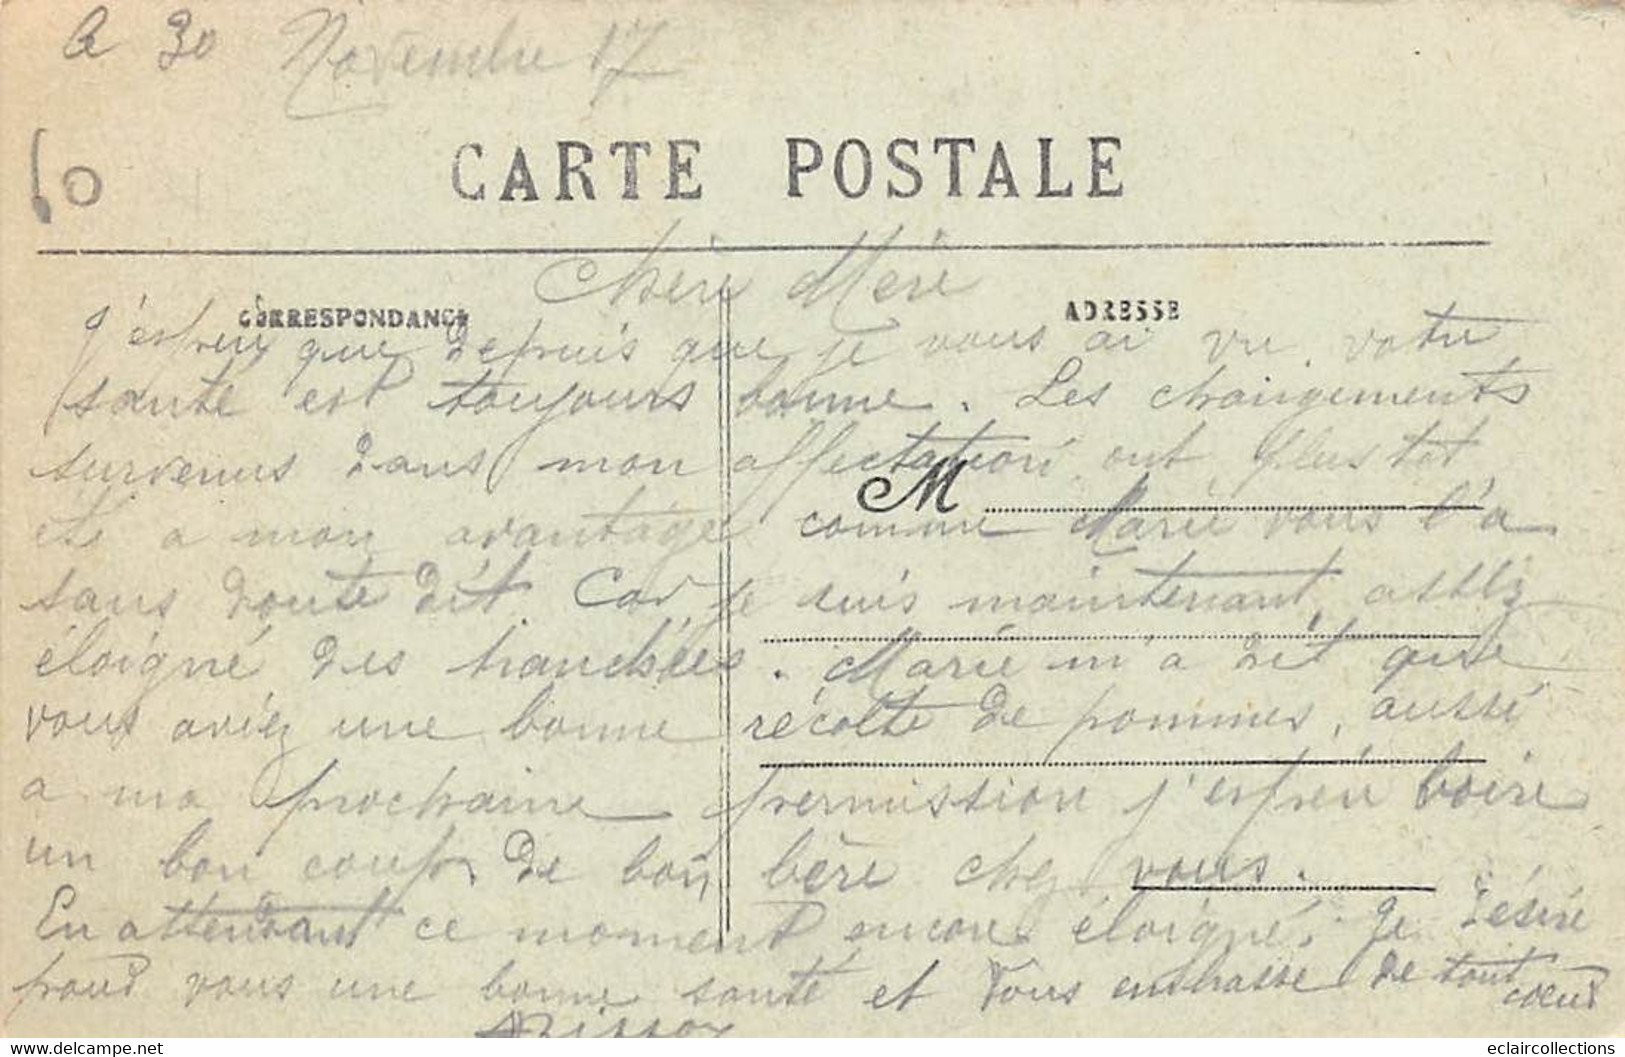 a 30 Novembre 17
60
CARTE POSTALE
Chère Mère
CORRESPONDANCE
ADRESSE
J'espère que depuis que je vous ai vu votre
santé est toujours bonne. Les changements
survenus dans mon affectation ont plustot
M
été a mon avantage comme Marie vous l'a
sans doute dit. Car je suis maintenant assez
éloigné des tranchées. Marie m'a dit que
vous aviez une bonne récolte de pommes, aussi
a ma prochaine permission j'espère boire
un bon coup de bon bère chez vous.
En attendant ce moment encore éloigné. Je désire
pour vous une bonne santé et vous embrasse de tout
coeur
delcampe.net
eclaircollections